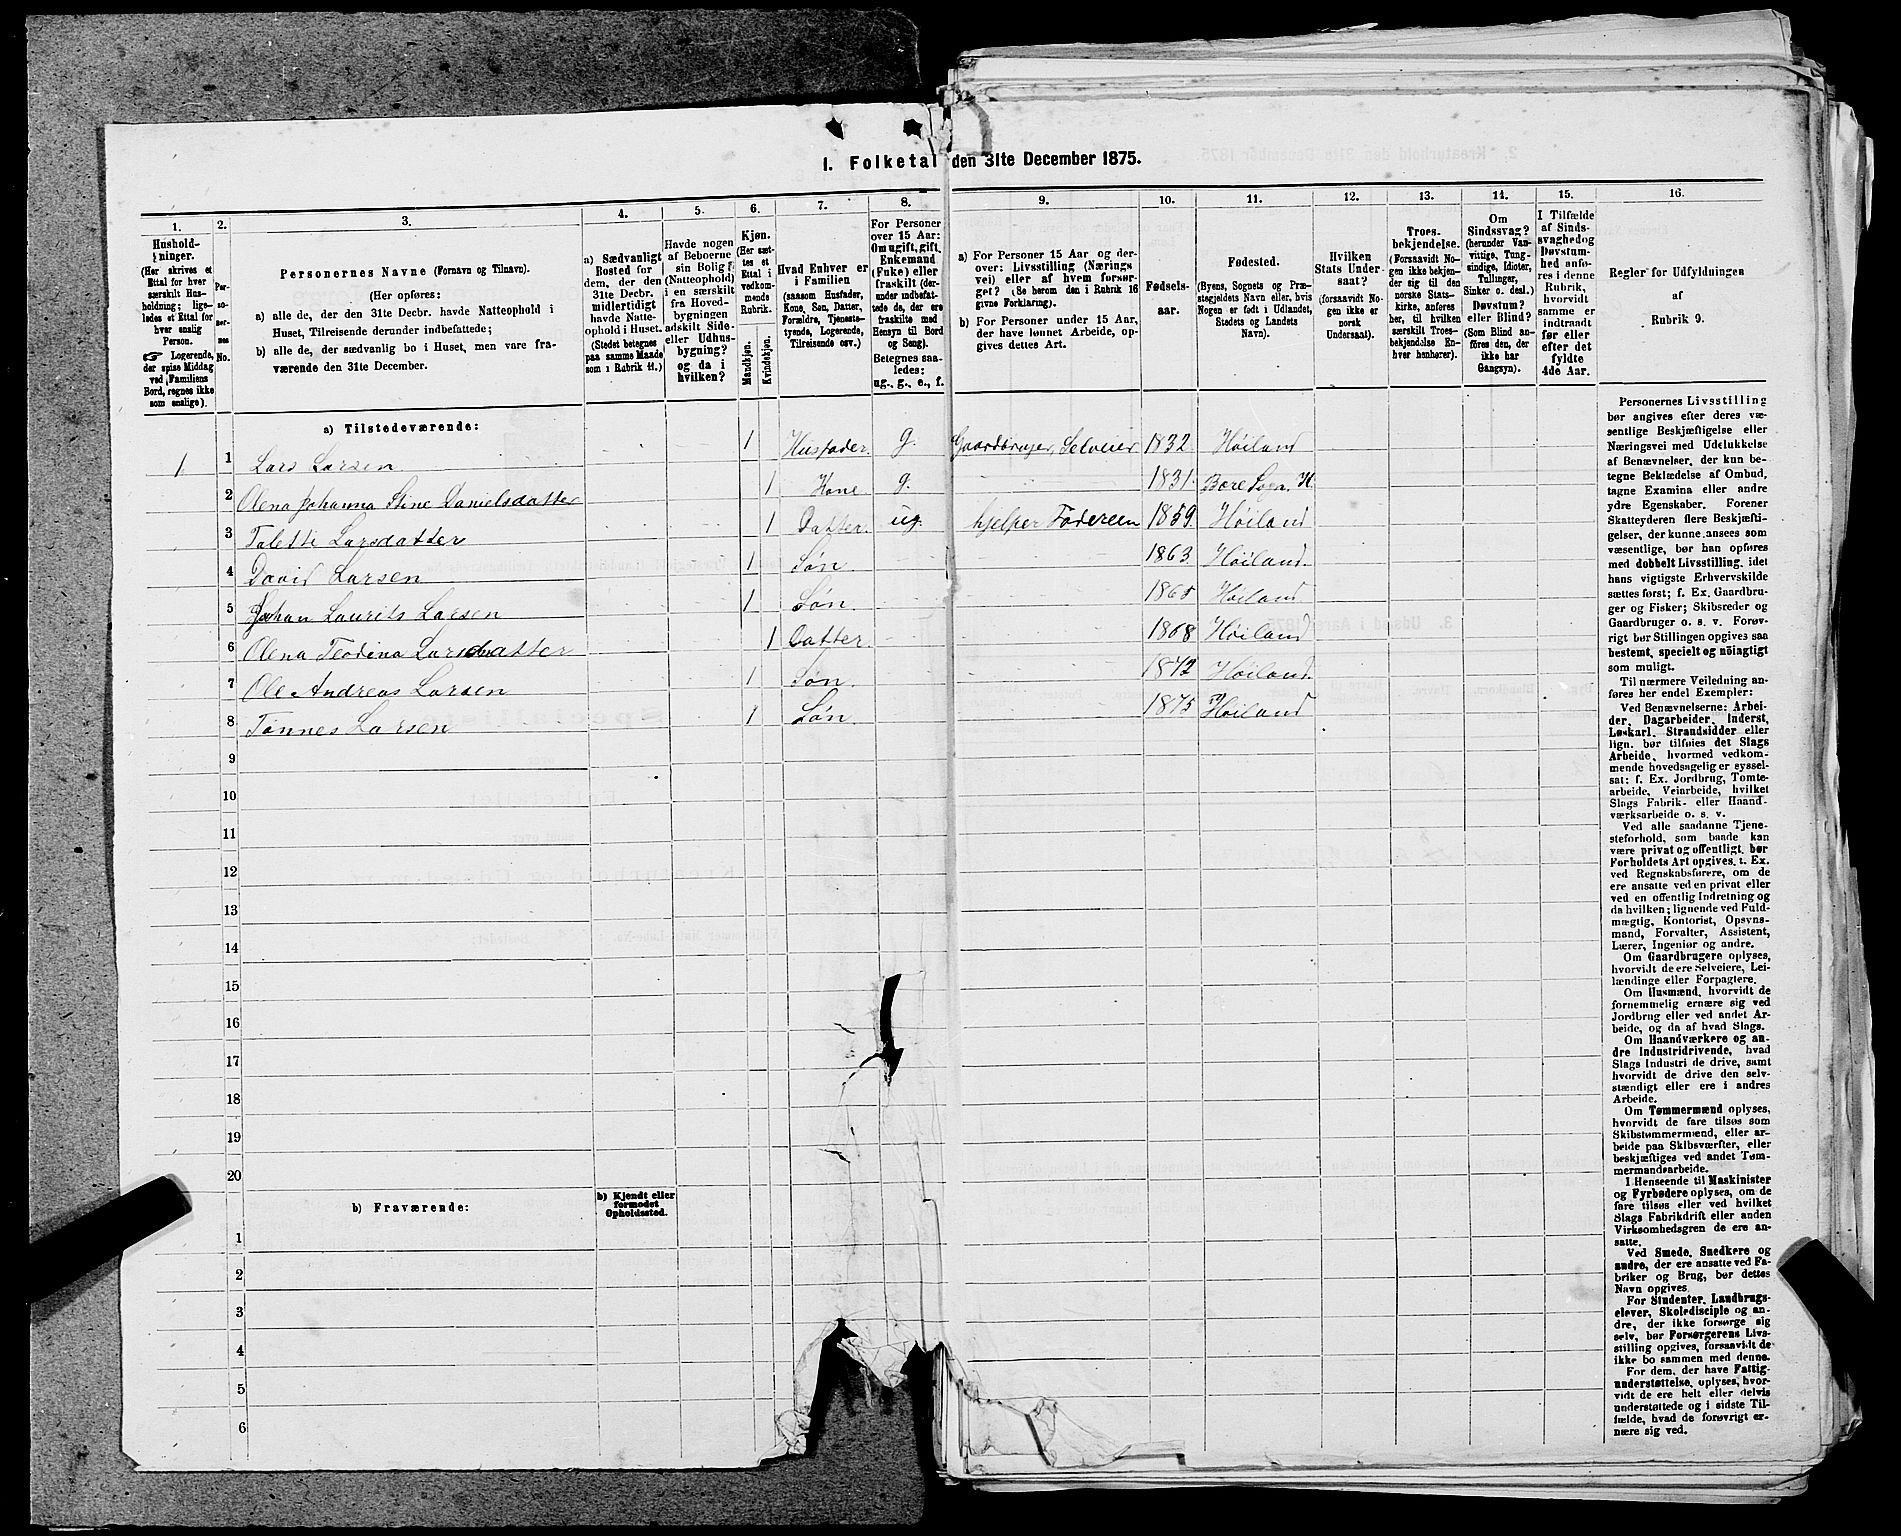 1. Folketal den 31te December 1875.
1.
2.
3.
4.
5.
6.
7.
8.
9.
10.
11.
12.
13.
14.
15.
16.
Hushold-
ninger.
(Her skrives et
Ettal for hver
særskilt Hus-
holdning; lige-
ledes et Ettal for
hver enslig
Person.
☞ Logerende,
der spise Middag
ved Familiens
Bord, regnes ikke
som enslige).
Per-
so-
ner-
nes
No.
Personernes Navne (Fornavn og Tilnavn).
(Her opføres:
a) alle de, der den 31te Decbr. havde Natteophold i
Huset, Tilreisende derunder indbefattede;
b) alle de, der sædvanlig bo i Huset, men vare fra-
værende den 31te December.
a) Sædvanligt
Bosted for
dem, der den
31te Decbr.
midlertidigt
havde Natte-
ophold i Huset.
(Stedet betegnes
paa samme Maade
som i Rubrik 11.)
Havde nogen
af Beboerne
sin Bolig
(Natteophold)
i en særskilt
fra Hoved-
bygningen
adskilt Side-
eller Udhus-
bygning?
og da i
hvilken?
Kjøn.
(Her sæt-
tes et
Ettal i
vedkom-
mende
Rubrik.
Mandkjøn.
Kvindekjøn.
Hvad Enhver er
i Familien
(saasom Husfader,
Kone, Søn, Datter,
Forældre, Tjeneste-
tyende, Logerende,
Tilreisende osv.)
For Personer
over 15 Aar:
Om ugift, gift,
Enkemand
(Enke) eller
fraskilt (der-
under indbefat-
tede de, der ere
fraskilte med
Hensyn til Bord
og Seng).
Betegnes saa-
ledes:
ug., g., e., f.
a) For Personer 15 Aar og der-
over: Livsstilling (Nærings
vei) eller af hvem forsør-
get? (Se herom den i Rubrik 16
givne Forklaring).
b) For Personer under 15 Aar,
der have lønnet Arbeide, op-
gives dettes Art.
Fødsels-
aar.
Fødested.
(Byens, Sognets og Præ-
stegjeldets Navn eller, hvis
Nogen er født i Udlandet,
Stedets og Landets
Navn).
Hvilken
Stats Under-
saat?
(forsaavidt No-
gen ikke er
norsk
Undersaat).
Troes-
bekjendelse.
(Forsaavidt No-
gen ikke bekjen-
der sig til den
norske Stats-
kirke, anføres
her, til hvilken
særskilt Troes-
bekjendelse En-
hver henhører).
Om
Sindssvag?
(herunder Van-
vittige, Tung-
sindige, Idioter,
Tullinger,
Sinker o. desl.)
Døvstum?
eller Blind?
(Som Blind an-
føres den, der
ikke har
Gangsyn).
I Tilfælde
af Sinds-
svaghed og
Døvstum-
hed anfø-
res i denne
Rubrik,
hvorvidt
samme er
indtraadt
før eller
efter det
fyldte
4de Aar.
Regler for Udfyldningen
af
Rubrik 9.
a) Tilstedeværende:
1 1 Lars Larsen 1 Husfader g. Gaardbruger, Selveier 1832 Høiland
2 Olena Johanna Stine Danielsdatter 1 Kone g. 1831. Bore Sogn. K
3 Taletti Larsdatter 1 Datter. ug. hjelper Fodereen 1859. Høiland
4 David Larsen 1 Søn. 1863. Høiland.
5 Johan Laurits Larsen 1 Søn. 1865 Høiland
6 Olena Teodina Larsdatter 1 Datter. 1868 Høiland
7 Ole Andreas Larsen 1 Søn. 1872 Høiland.
8 Tønnes Larsen 1 Søn. 1875 Høiland
9
10
11
12
13
14
15
16
17
18
19
20
b) Fraværende:
b) Kjendt eller
formodet
Opholdssted.
1
2
3
4
5
6
Personernes Livsstilling
bør angives efter deres væ-
sentlige Beskjæftigelse eller
Næringsvei med Udelukkelse
af Benævnelser, der kun be-
tegne Beklædelse af Ombud,
tagne Examina eller andre
ydre Egenskaber. Forener
Skatteyderen flere Beskjæfti-
gelser, der kunne ansees som
væsentlige, bør han opføres
med dobbelt Livsstilling, idet
hans vigtigste Erhvervskilde
sættes først; f. Ex. Gaardbru-
ger og Fisker; Skibsreder og
Gaardbruger o. s. v. Forøv-
rigt bør Stillingen opgives saa
bestemt, specielt og nöiagtigt
som muligt.
Til nærmere Veiledning an-
føres her endel Exempler:
Ved Benævnelserne: Arbei-
der, Dagarbeider, Inderst,
Løskarl, Strandsidder eller
lign. bør tilføies det Slags
Arbeide, hvormed vedkom-
mende hovedsagelig er syssel-
sat: f. Ex. Jordbrug, Tomte-
arbeide, Veiarbeide, hvilket
Slags Fabrik- eller Haand-
værksarbeide o. s. v.
Ved alle saadanne Tjene-
steforhold, som baade kan
være privat og offentligt, bør
Forholdets Art opgives, t. Ex.
ved Regnskabsførere, om de
ere ansatte ved en privat eller
ved en offentlig Indretning og
da hvilken; lignende ved Fuld-
mægtig, Kontorist, Opsyns-
mand, Forvalter, Assistent,
Lærer, Ingeniør og andre.
Om Gaardbrugere oplyses,
hvorvidt de ere Selveiere, Lei-
lændinge eller Forpagtere.
Om Husmænd, hvorvidt de
fornemmelig ernære sig ved
Jordbrug eller ved andet Ar-
beide, og da af hvad Slags.
Om Haandværkere og an-
dre Industridrivende, hvad
Slags Industri de drive, samt
hvorvidt de drive den selv-
stændigt eller ere i andres
Arbeide.
Om Tømmermænd oplyses,
hvorvidt de fare tilsøs som
Skibstømmermænd, eller ar-
beide paa Skibsværfter, eller
beskjæftiges ved andet Tøm-
mermandsarbeide.
I Henseende til Maskinister
og Fyrbødere oplyses, om de
fare tilsøs eller ved hvilket
Slags Fabrikdrift eller anden
Virksomhedsgren de ere an-
satte.
Ved Smede, Snedkere og
andre, der ere ansatte ved Fa-
briker og Brug, bør dettes
Navn opgives.
For Studenter, Landbrugs-
elever, Skoledisciple og an-
dre, der ikke forsørge sig
selv, bør Forsørgerens Livs-
stilling opgives, forsaavidt de
ikke bo sammen med denne.
For dem, der have Fattig-
understøttelse, oplyses, hvor-
vidt de ere helt eller delvis
understøttede og i sidste Til-
fælde, hvad de forøvrigt er-
nære sig ved.